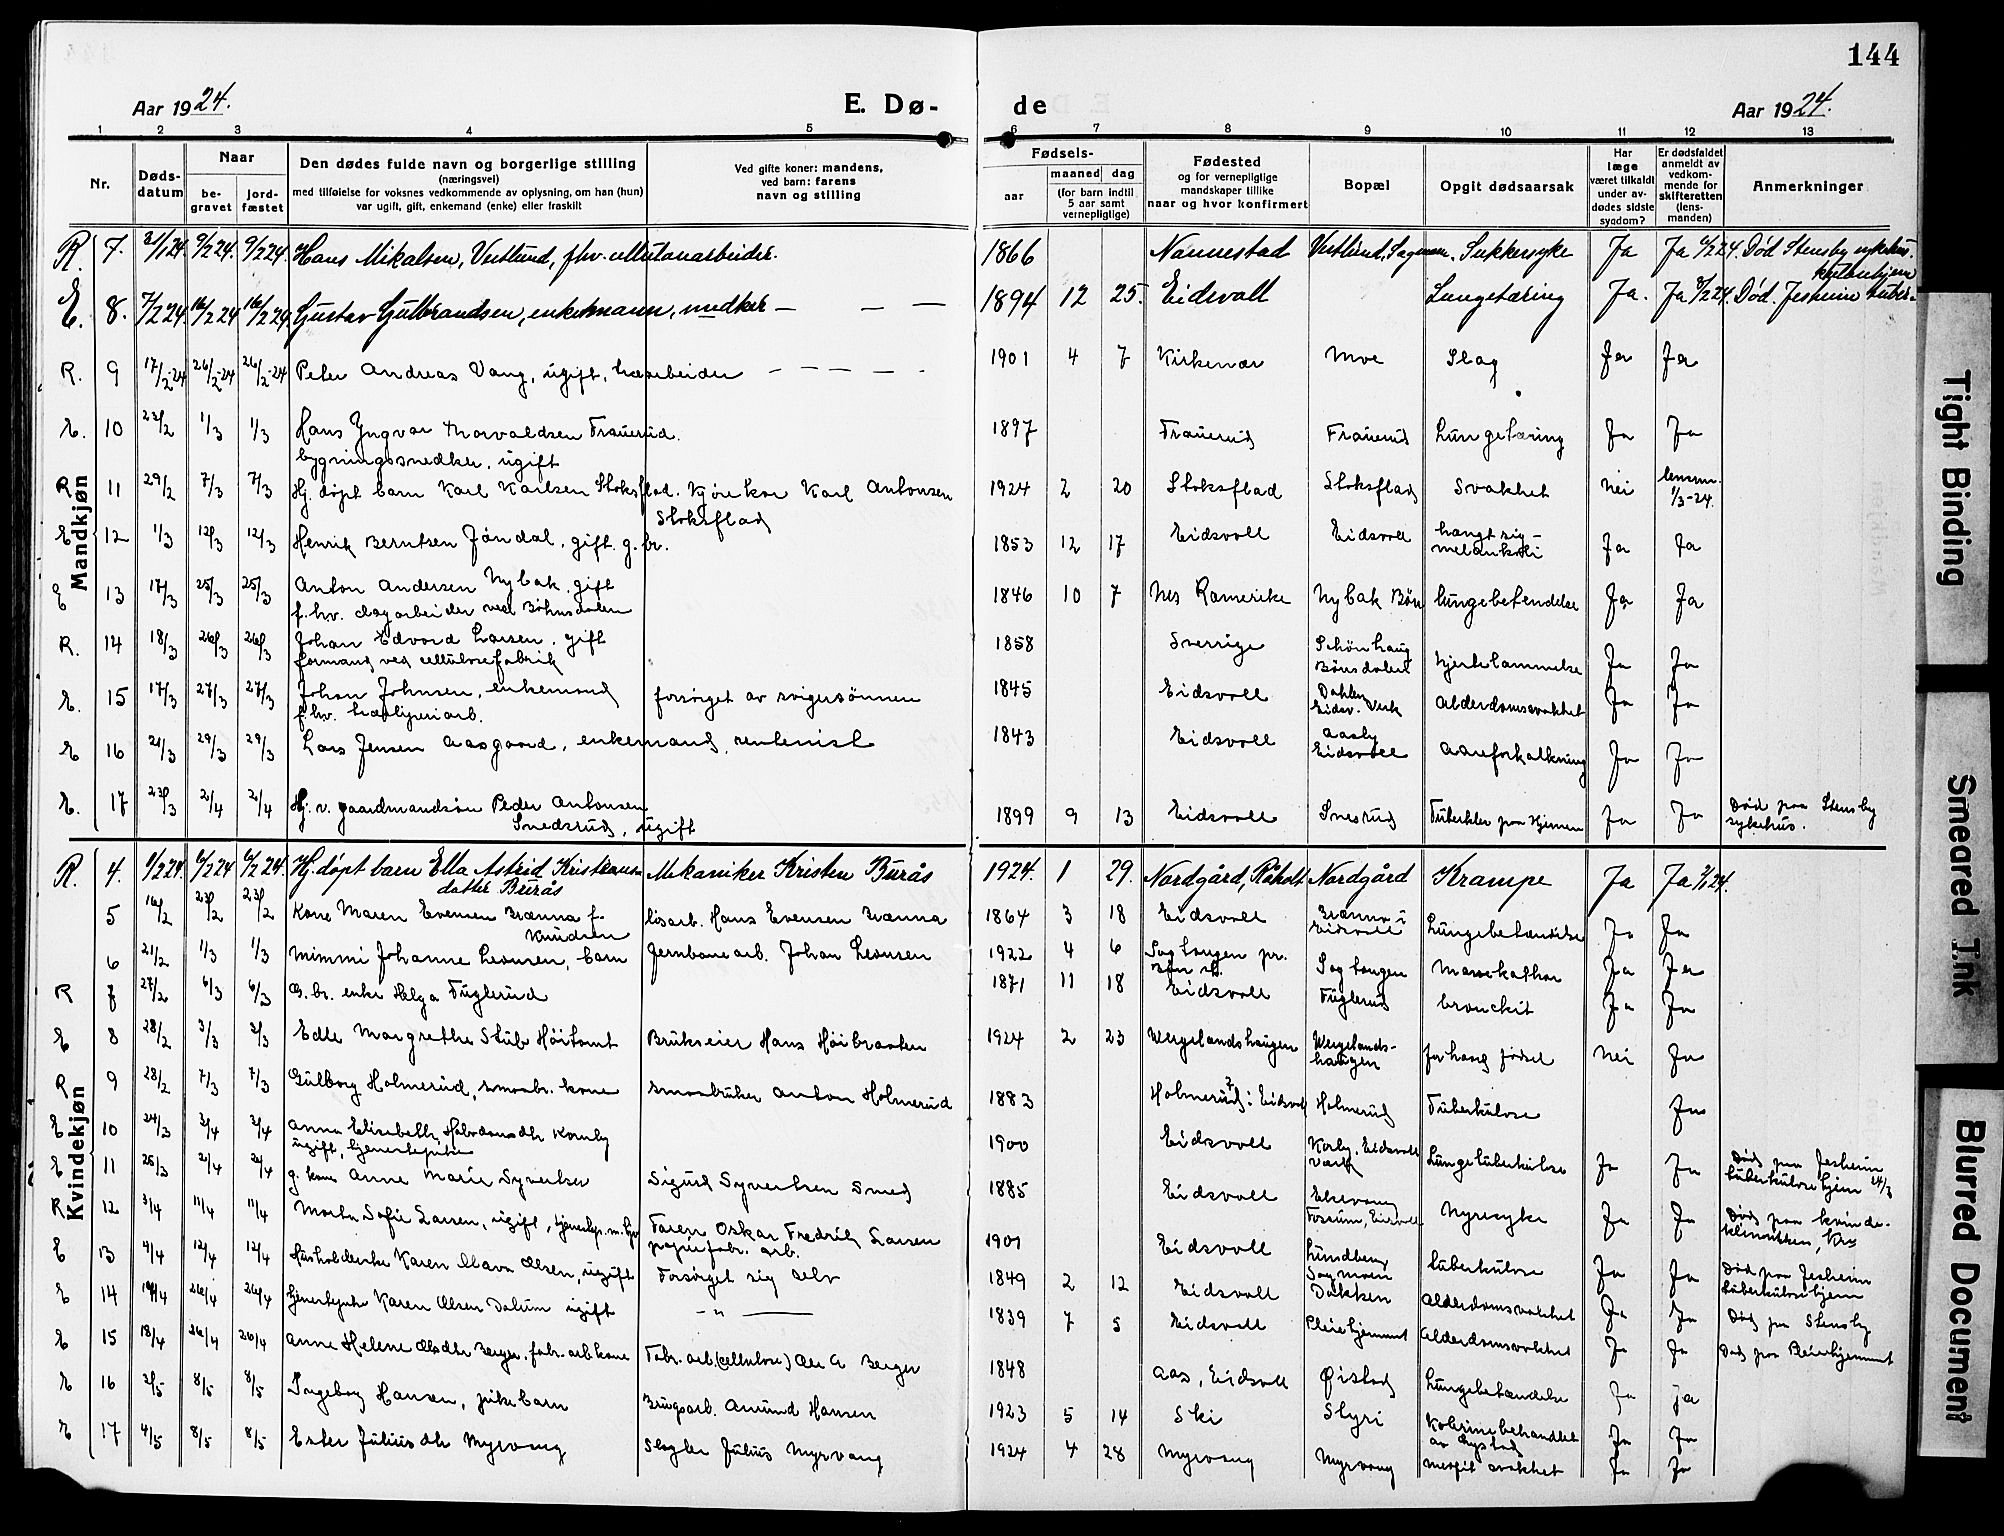 144
Aar 1924. E. Dø- de Aar 1924.
1 2 3 4 5 6 7 8 9 10 11 12 13
Nr.
Døds-
datum
Naar
be-
gravet
jord-
fæstet
Den dødes fulde navn og borgerlige stilling
(næringsvei)
med tilføielse for voksnes vedkommende av oplysning, om han (hun)
var ugift, gift, enkemand (enke) eller fraskilt
Ved gifte koner: mandens,
ved barn: farens
navn og stilling
Fødsels-
aar
maaned dag
(for barn indtil
5 aar samt
vernepligtige)
Fødested
og for vernepligtige
mandskaper tillike
naar og hvor konfirmert
Bopæl
Opgit dødsaarsak
Har
læge
været tilkaldt
under av-
dødes sidste
sygdom?
Er dødsfaldet
anmeldt av
vedkom-
mende for
skifteretten
(lens-
manden)
Anmerkninger
Mandkjøn
R. 7. 31/1 24. 9/2 24. 9/2 24. Hans Mikalsen, Vestlund, fhv. 1866 Nannestad Vestlund, Sukkersyke Ja Ja Død Stensby
E. 8. 7/2 24. 16/2 24 16/2 24 Gustav Gulbrandsen, enkemann, snedker — — — 1894 12 25. Eidsvoll Lungetæring Ja. Ja 8/2 24. Død. Jesheim tuber-
kulosehjem
R. 9 17/2-24 26/2-24 26/2-24 Peter Andreas Vang, ugift, — — — — 1901 4 7 Kirkenær Moe Slag Ja Ja
E. 10 23/2 1/3 1/3 Hans Yngvar Thorvaldsen Trauerud.
bygningssnedker, ugift 1897 Trauerud Trauerud Lungetæring Ja Ja
R 11 29/2 7/3 7/3 Hj. døpt barn Karl Karlsen Stoksflad. Kjørekar Karl Antonsen
Stoksflad 1924 2 20 Stoksflad Stoksflad Svakhet Nei lensm.
1/3-24.
E 12 1/3 12/3 12/3 Henrik Berntsen Jøndal, gift. g.br. 1853 12 17 Eidsvoll Eidsvoll hængt sig -
melankoli Ja Ja
E 13 17/3 25/3 25/3 Anton Andersen Nybak, gift
f.hv. dagarbeider ved Bøhnsdalen 1846 10 7 Nes Romerike Nybak Bøn lungebetendelse Ja Ja
R. 14 18/3 26/3 26/3 Johan Edvard Larsen, gift
formand ved cellulosefabrik 1858 Sverrige Schönhaug
Bönsdalen hjertelammelse Ja Ja
E. 15 17/3 27/3 27/3 Johan Johnsen, enkemand
f.hv. arb. forsørget av svigersønnen 1845 Eidsvoll Dahlen
Eidsv. Verk Alderdomssvakhet Ja Ja
E 16 21/3 29/3 29/3 Lars Jensen Aasgaard, enkemand, rentenist 1843 Eidsvoll Aasby
Eidsvoll Aareforkalkning Ja Ja
E. 17 23/3 2/4 2/4 Hj. v. gaardmandsøn Peder Antonsen
Snedsrud, ugift 1899 9 13 Eidsvoll Snesrud Tuberkler paa hjernen Ja Ja Død paa Stensby
sykehus.
Kvindekjøn
R. 4. 1/2 24. 6/2 24 6/2 24. Hj. døpt barn Ella Astrid Kristians-
datter Burås Mekaniker Kristen Burås 1924. 1 29. Nordgård, Råholt Nordgård Krampe Ja Ja
5 16/2 23/2 23/2 Kone Maren Evensen Brænna f.
Knudsen løsarb. Hans Evensen Brænna 1864 3 18 Eidsvoll Brænna i
Eidsvoll Lungebetændelse Ja Ja
6 21/2 1/3 1/3 Mimmi Johanne Leonsen, barn Jernbanearb. Johan Leonsen 1922 4 6 Sagtangen pr.
Bøn st. Sagtangen Mavekatharr Ja Ja
R 7 27/2 6/3 6/3 G. br. enke Helga Fuglerud 1871 11 18 Eidsvoll Fuglerud bronckit Ja Ja
E 8 28/2 3/3 3/3 Edle Margrethe Stub Høitomt Brukseier Hans Høibraaten 1924 2 23 Wergelandshaugen Wergelands-
haugen for haard fødsel Nei Ja
R 9 28/2 7/3 7/3 Gulborg Holmerud, smaabr. kone Smaabruker Anton Holmerud 1883 Holmerud i Eidsvoll Holmerud Tuberkulose Ja
E 10 24/3 3/4 3/4 Anna Elisabeth Halvdansdtr Kornby
ugift, tjenestepike 1900 Eidsvoll Korby, Eidsvoll
Værk Lungetuberkulose Ja Ja Død paa Jesheim
tuberkulosehjem 24/3
E 11 25/3 2/4 2/4 g. kone Anne Marie Syvertsen Sigurd Syvertsen Smed 1885 Eidsvoll Nyresyke Ja Ja Død paa kvinde-
klinikken, Kra
R 12 3/4 11/4 11/4 Marta Sofie Larsen, ugift, Faren Oskar Fredrik Larsen
papirfabr. arb. 1901 Eidsvoll Lundberg
Sagmoen tuberkulose Ja Ja Død paa Jesheim
tuberkulosehjem
E 13 4/4 12/4 12/4 Husholderske Karen Olava Olsen, ugift Forsørget sig selv 1849 2 12 Eidsvoll Bakken Alderdomssvakhet Ja Ja Død paa Stensby
E 14 19/4 26/4 26/4 tjenestepike Karen Olsen Dalum ugift — " — 1839 7 5 Eidsvoll Pleiehjemmet Alderdomssvakhet Ja Ja Død paa Pleiehjemmet
E 15 18/4 26/4 26/4 Anne Helene Olsdtr Berger, fabr. arb. kone Fabr. arb. (cellulose) Ole A Berger 1848 Aas, Eidsvoll Øistad Lungebetændelse Ja ja
E 16 3/5 8/5 8/5 Ingeborg Hansen, pikebarn Bruksarb. Amund Hansen 1923 5 14 Ski Styri Ja Ja
E 17 4/5 8/5 8/5 Ester Juliusdtr Myrvang Sagler Julius Myrvang 1924 4 28 Myrvang Myrvang Medfødt svakhet Ja Ja
Tight Binding
Smeared Ink
Blurred Document